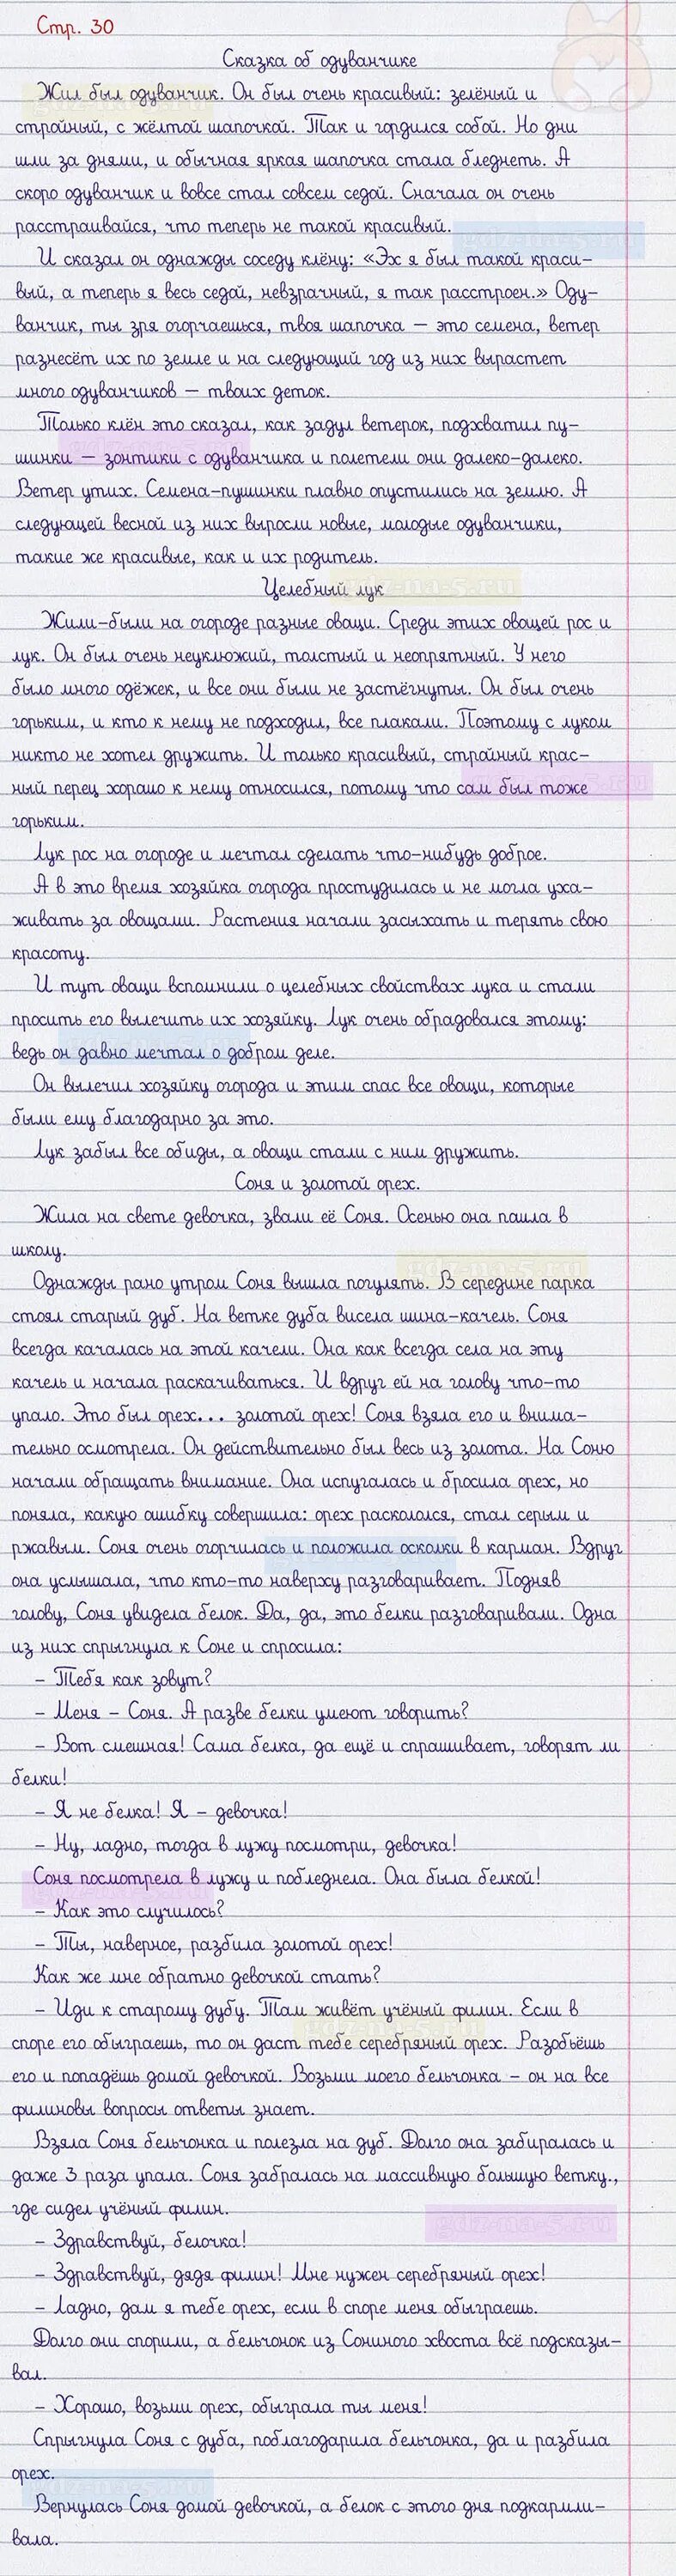 Стр. 30
Сказка об одуванчике
Жил был одуванчик. Он был очень красивый: зелёный и
стройный, с жёлтой шапочкой. Так и гордился собой. Но дни
шли за днями, и обычная яркая шапочка стала бледнеть. А
скоро одуванчик и вовсе стал совсем седой. Сначала он очень
расстраивайся, что теперь не такой красивый.
И сказал он однажды соседу клёну: «Эх я был такой краси-
вый, а теперь я весь седой, невзрачный, я так расстроен.» Оду-
ванчик, ты зря огорчаешься, твоя шапочка — это семена, ветер
разнесёт их по земле и на следующий год из них вырастет
много одуванчиков — твоих деток.
Только клён это сказал, как задул ветерок, подхватил пу-
шинки — зонтики с одуванчика и полетели они далеко-далеко.
Ветер утих. Семена-пушинки плавно опустились на землю. А
следующей весной из них выросли новые, молодые одуванчики,
такие же красивые, как и их родитель.
Целебный лук
Жили-были на огороде разные овощи. Среди этих овощей рос и
лук. Он был очень неуклюжий, толстый и неопрятный. У него
было много одёжек, и все они были не застёгнуты. Он был очень
горьким, и кто к нему не подходил, все плакали. Поэтому с луком
никто не хотел дружить. И только красивый, стройный крас-
ный перец хорошо к нему относился, потому что сам был тоже
горьким.
Лук рос на огороде и мечтал сделать что-нибудь доброе.
А в это время хозяйка огорода простудилась и не могла уха-
живать за овощами. Растения начали засыхать и терять свою
красоту.
И тут овощи вспомнили о целебных свойствах лука и стали
просить его вылечить их хозяйку. Лук очень обрадовался этому:
ведь он давно мечтал о добром деле.
Он вылечил хозяйку огорода и этим спас все овощи, которые
были ему благодарно за это.
Лук забыл все обиды, а овощи стали с ним дружить.
Соня и золотой орех.
Жила на свете девочка, звали её Соня. Осенью она пошла в
школу.
Однажды рано утром Соня вышла погулять. В середине парка
стоял старый дуб. На ветке дуба висела шина-качель. Соня
всегда качалась на этой качели. Она как всегда села на эту
качель и начала раскачиваться. И вдруг ей на голову что-то
упало. Это был орех... золотой орех! Соня взяла его и внима-
тельно осмотрела. Он действительно был весь из золота. На Соню
начали обращать внимание. Она испугалась и бросила орех, но
поняла, какую ошибку совершила: орех раскололся, стал серым и
ржавым. Соня очень огорчилась и положила осколки в карман. Вдруг
она услышала, что кто-то наверху разговаривает. Подняв
голову, Соня увидела белок. Да, да, это белки разговаривали. Одна
из них спрыгнула к Соне и спросила:
– Тебя как зовут?
– Меня – Соня. А разве белки умеют говорить?
– Вот смешная! Сама белка, да ещё и спрашивает, говорят ли
белки!
– Я не белка! Я – девочка!
– Ну, ладно, тогда в лужу посмотри, девочка!
Соня посмотрела в лужу и побледнела. Она была белкой!
– Как это случилось?
– Ты, наверное, разбила золотой орех!
Как же мне обратно девочкой стать?
– Иди к старому дубу. Там живёт учёный филин. Если в
споре его обыграешь, то он даст тебе серебряный орех. Разобьёшь
его и попадёшь домой девочкой. Возьми моего бельчонка – он на все
филиновы вопросы ответы знает.
Взяла Соня бельчонка и полезла на дуб. Долго она забиралась и
даже 3 раза упала. Соня забралась на массивную большую ветку.,
где сидел учёный филин.
– Здравствуй, белочка!
– Здравствуй, дядя филин! Мне нужен серебряный орех!
– Ладно, дам я тебе орех, если в споре меня обыграешь.
Долго они спорили, а бельчонок из Сониного хвоста всё подсказы-
вал.
– Хорошо, возьми орех, обыграла ты меня!
Спрыгнула Соня с дуба, поблагодарила бельчонка, да и разбила
орех.
Вернулась Соня домой девочкой, а белок с этого дня подкармли-
вала.